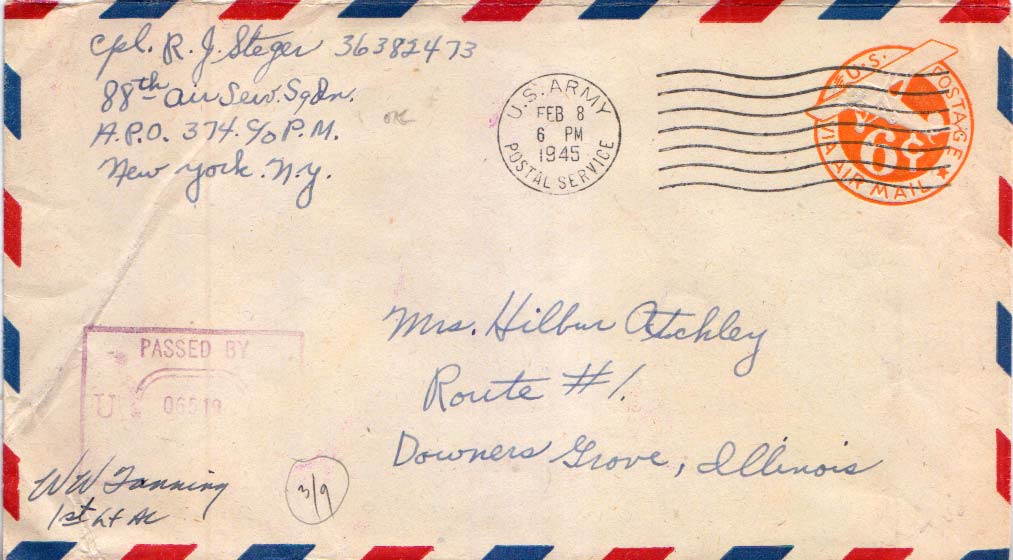 Cpl. R. J. Steger 36382473
88th Air Serv. Sqdn.
A.P.O. 374. c/o P.M.
New York. N.Y.
OK
U.S. ARMY
FEB 8
6 PM
1945
POSTAL SERVICE
U.S. POSTAGE
6¢
VIA AIR MAIL
Mrs. Hilbur Atchley
Route #1.
Downers Grove, Illinois
PASSED BY
U
06519
WW Fanning
1st Lt AC
3/9